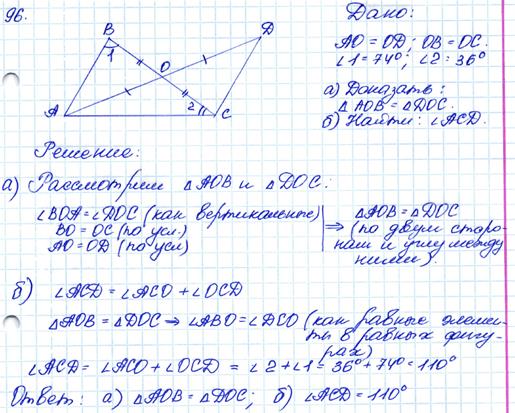 96.
Дано:
B
D
1
O
2
A
C
AO = OD; OB = OC.
∠1 = 74°; ∠2 = 36°
а) Доказать:
△AOB = △DOC.
б) Найти: ∠ACD.
Решение:
а) Рассмотрим △AOB и △DOC:
∠BOA = ∠DOC (как вертикальные)
BO = OC (по усл.)
AO = OD (по усл)
⇒ △AOB = △DOC
(по двум сторо-
нам и углу между
ними).
б) ∠ACD = ∠ACO + ∠OCD
△AOB = △DOC ⇒ ∠ABO = ∠DCO (как равные элемен-
ты в равных фигу-
рах)
∠ACD = ∠ACO + ∠OCD = ∠2 + ∠1 = 36° + 74° = 110°
Ответ: а) △AOB = △DOC; б) ∠ACD = 110°